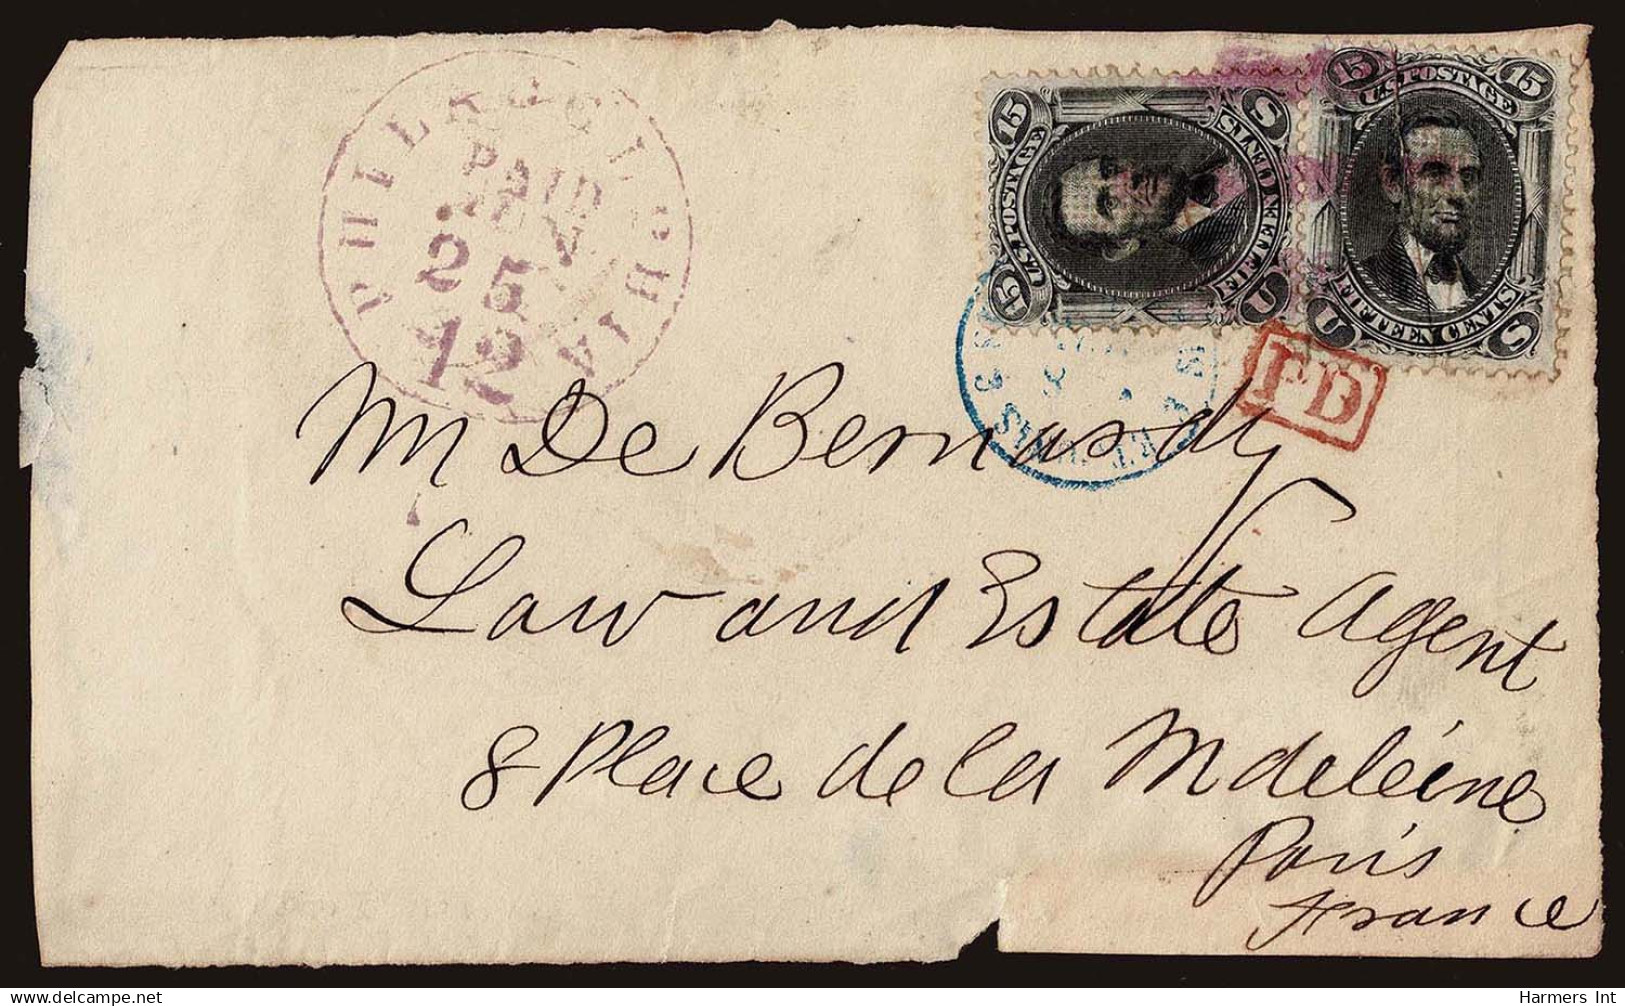 PHILADELPHIA
PAID
JUN
25
12
15
U.S. POSTAGE
15
FIFTEEN CENTS
U S
15 15
U.S. POSTAGE
FIFTEEN CENTS
U S
PD
3
CALAIS
M De Bernardy
Law and Estate Agent
8 Place de la Mdeléine
Paris
France
delcampe.net
Harmers Int